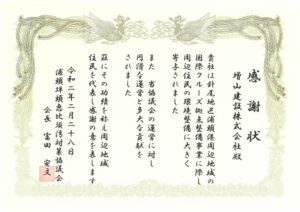 感謝状
増山建設株式会社殿
貴社は針尾地区浦頭港周辺地域の
国際クルーズ拠点整備事業に際し
周辺住民の環境整備に大きく
寄与されました
また 当協議会の運営に対し
円滑な運営と多大な貢献を
されました
茲にその功績を称え周辺地域
住民を代表し感謝の意を表します
令和二年二月二十八日
浦頭埠頭恵比須湾対策協議会
会長 富田